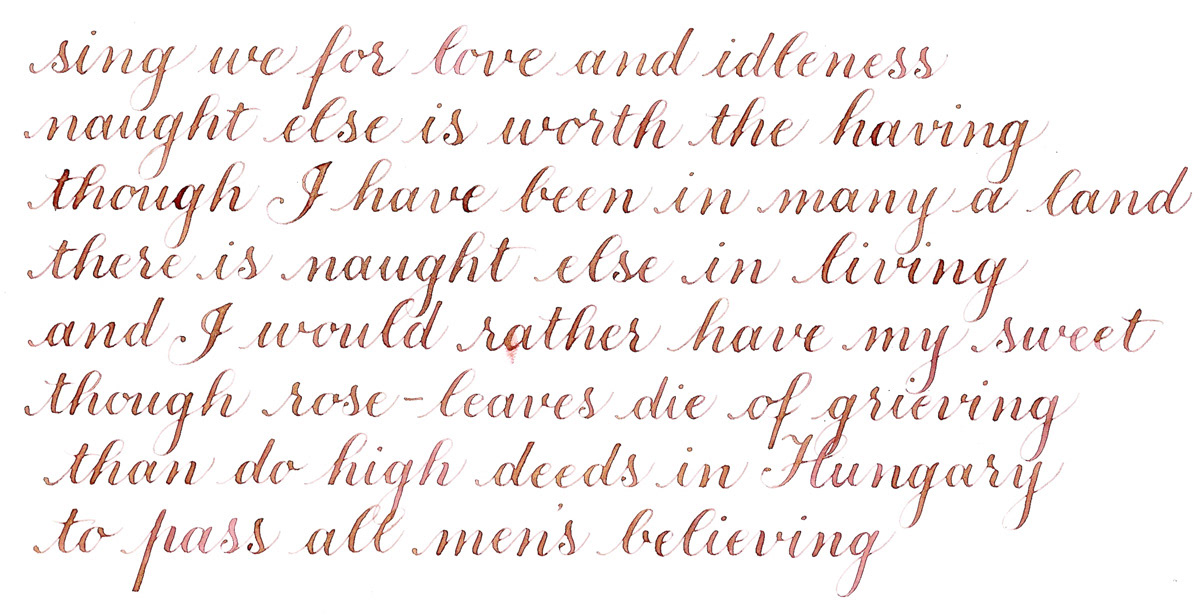 sing we for love and idleness
naught else is worth the having
though I have been in many a land
there is naught else in living
and I would rather have my sweet
though rose-leaves die of grieving
than do high deeds in Hungary
to pass all men's believing